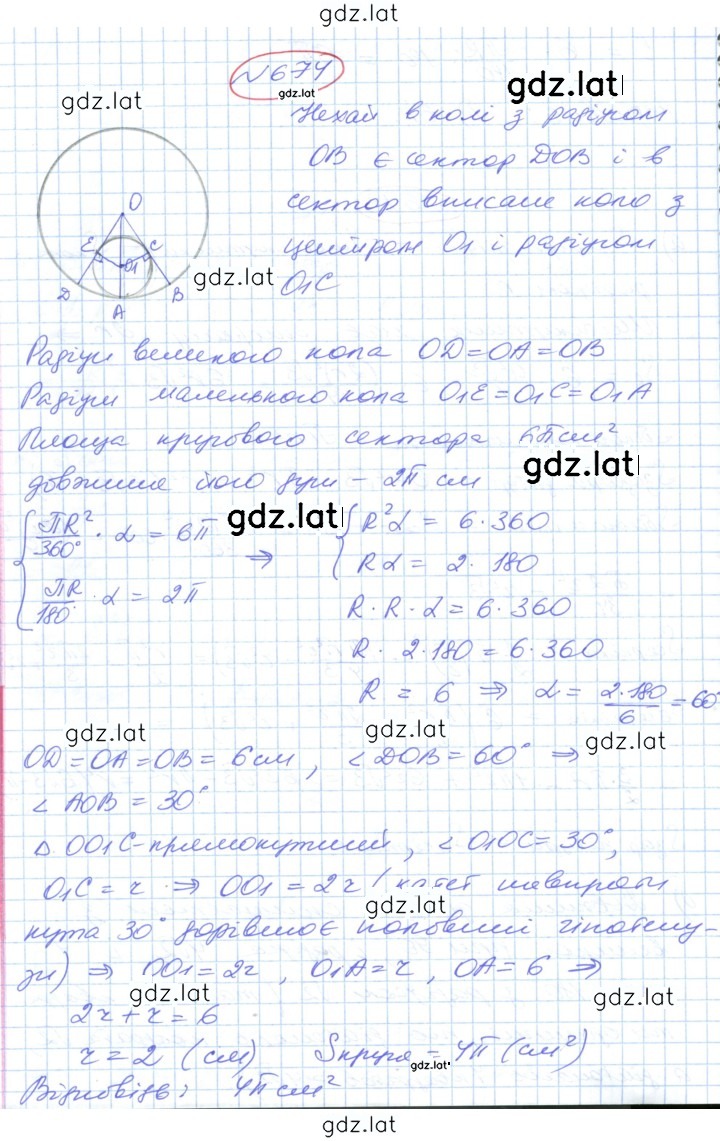 gdz.lat
№674
gdz.lat
gdz.lat
gdz.lat
Нехай в колі з радіусом
OB є сектор DOB і в
сектор вписане коло з
центром O1 і радіусом
O1C
gdz.lat
O
E
C
O1
D
B
A
Радіуси великого кола OD=OA=OB
Радіуси маленького кола O1E=O1C=O1A
Площа кругового сектора 6π см²
gdz.lat
довжина його дуги – 2π см
πR²/360° · α = 6π
gdz.lat
⇒
R²α = 6·360
πR/180 · α = 2π
Rα = 2·180
R·R·α = 6·360
R·2·180 = 6·360
R = 6 ⇒ α = 2·180/6 = 60°
gdz.lat
gdz.lat
gdz.lat
OD=OA=OB= 6см, ∠DOB=60° ⇒
∠AOB = 30°
△ OO1C-прямокутний, ∠O1OC=30°,
O1C = r ⇒ OO1 = 2r (катет навпроти
gdz.lat
кута 30° дорівнює половині гіпотену-
зи) ⇒ OO1=2r, O1A=r, OA=6 ⇒
gdz.lat
gdz.lat
2r+r=6
r=2 (см) Sкруга = 4π (см²)
gdz.lat
Відповідь: 4π см²
gdz.lat